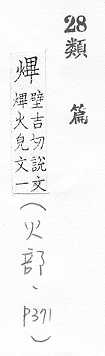 28類
篇
熚
壁吉切說文
熚火皃文一
(火部、
P371)